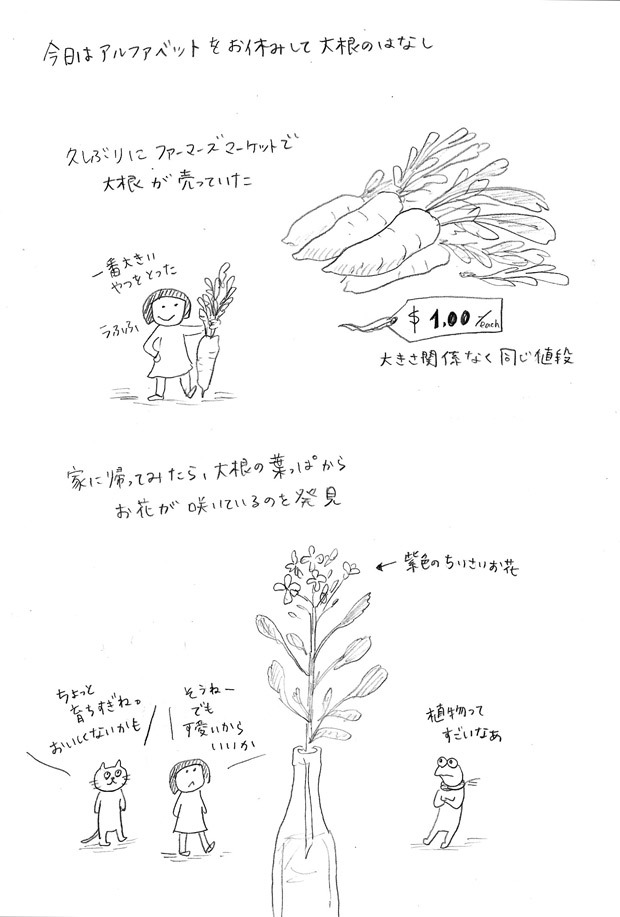 今日はアルファベットをお休みして大根のはなし
久しぶりにファーマーズマーケットで
大根が売っていた
一番大きい
やつをとった
うふふ
$ 1.00/each
大きさ関係なく同じ値段
家に帰ってみたら、大根の葉っぱから
お花が咲いているのを発見
←紫色のちいさいお花
ちょっと
育ちすぎね。
おいしくないかも
そうねー
でも
可愛いから
いいか
植物って
すごいなあ